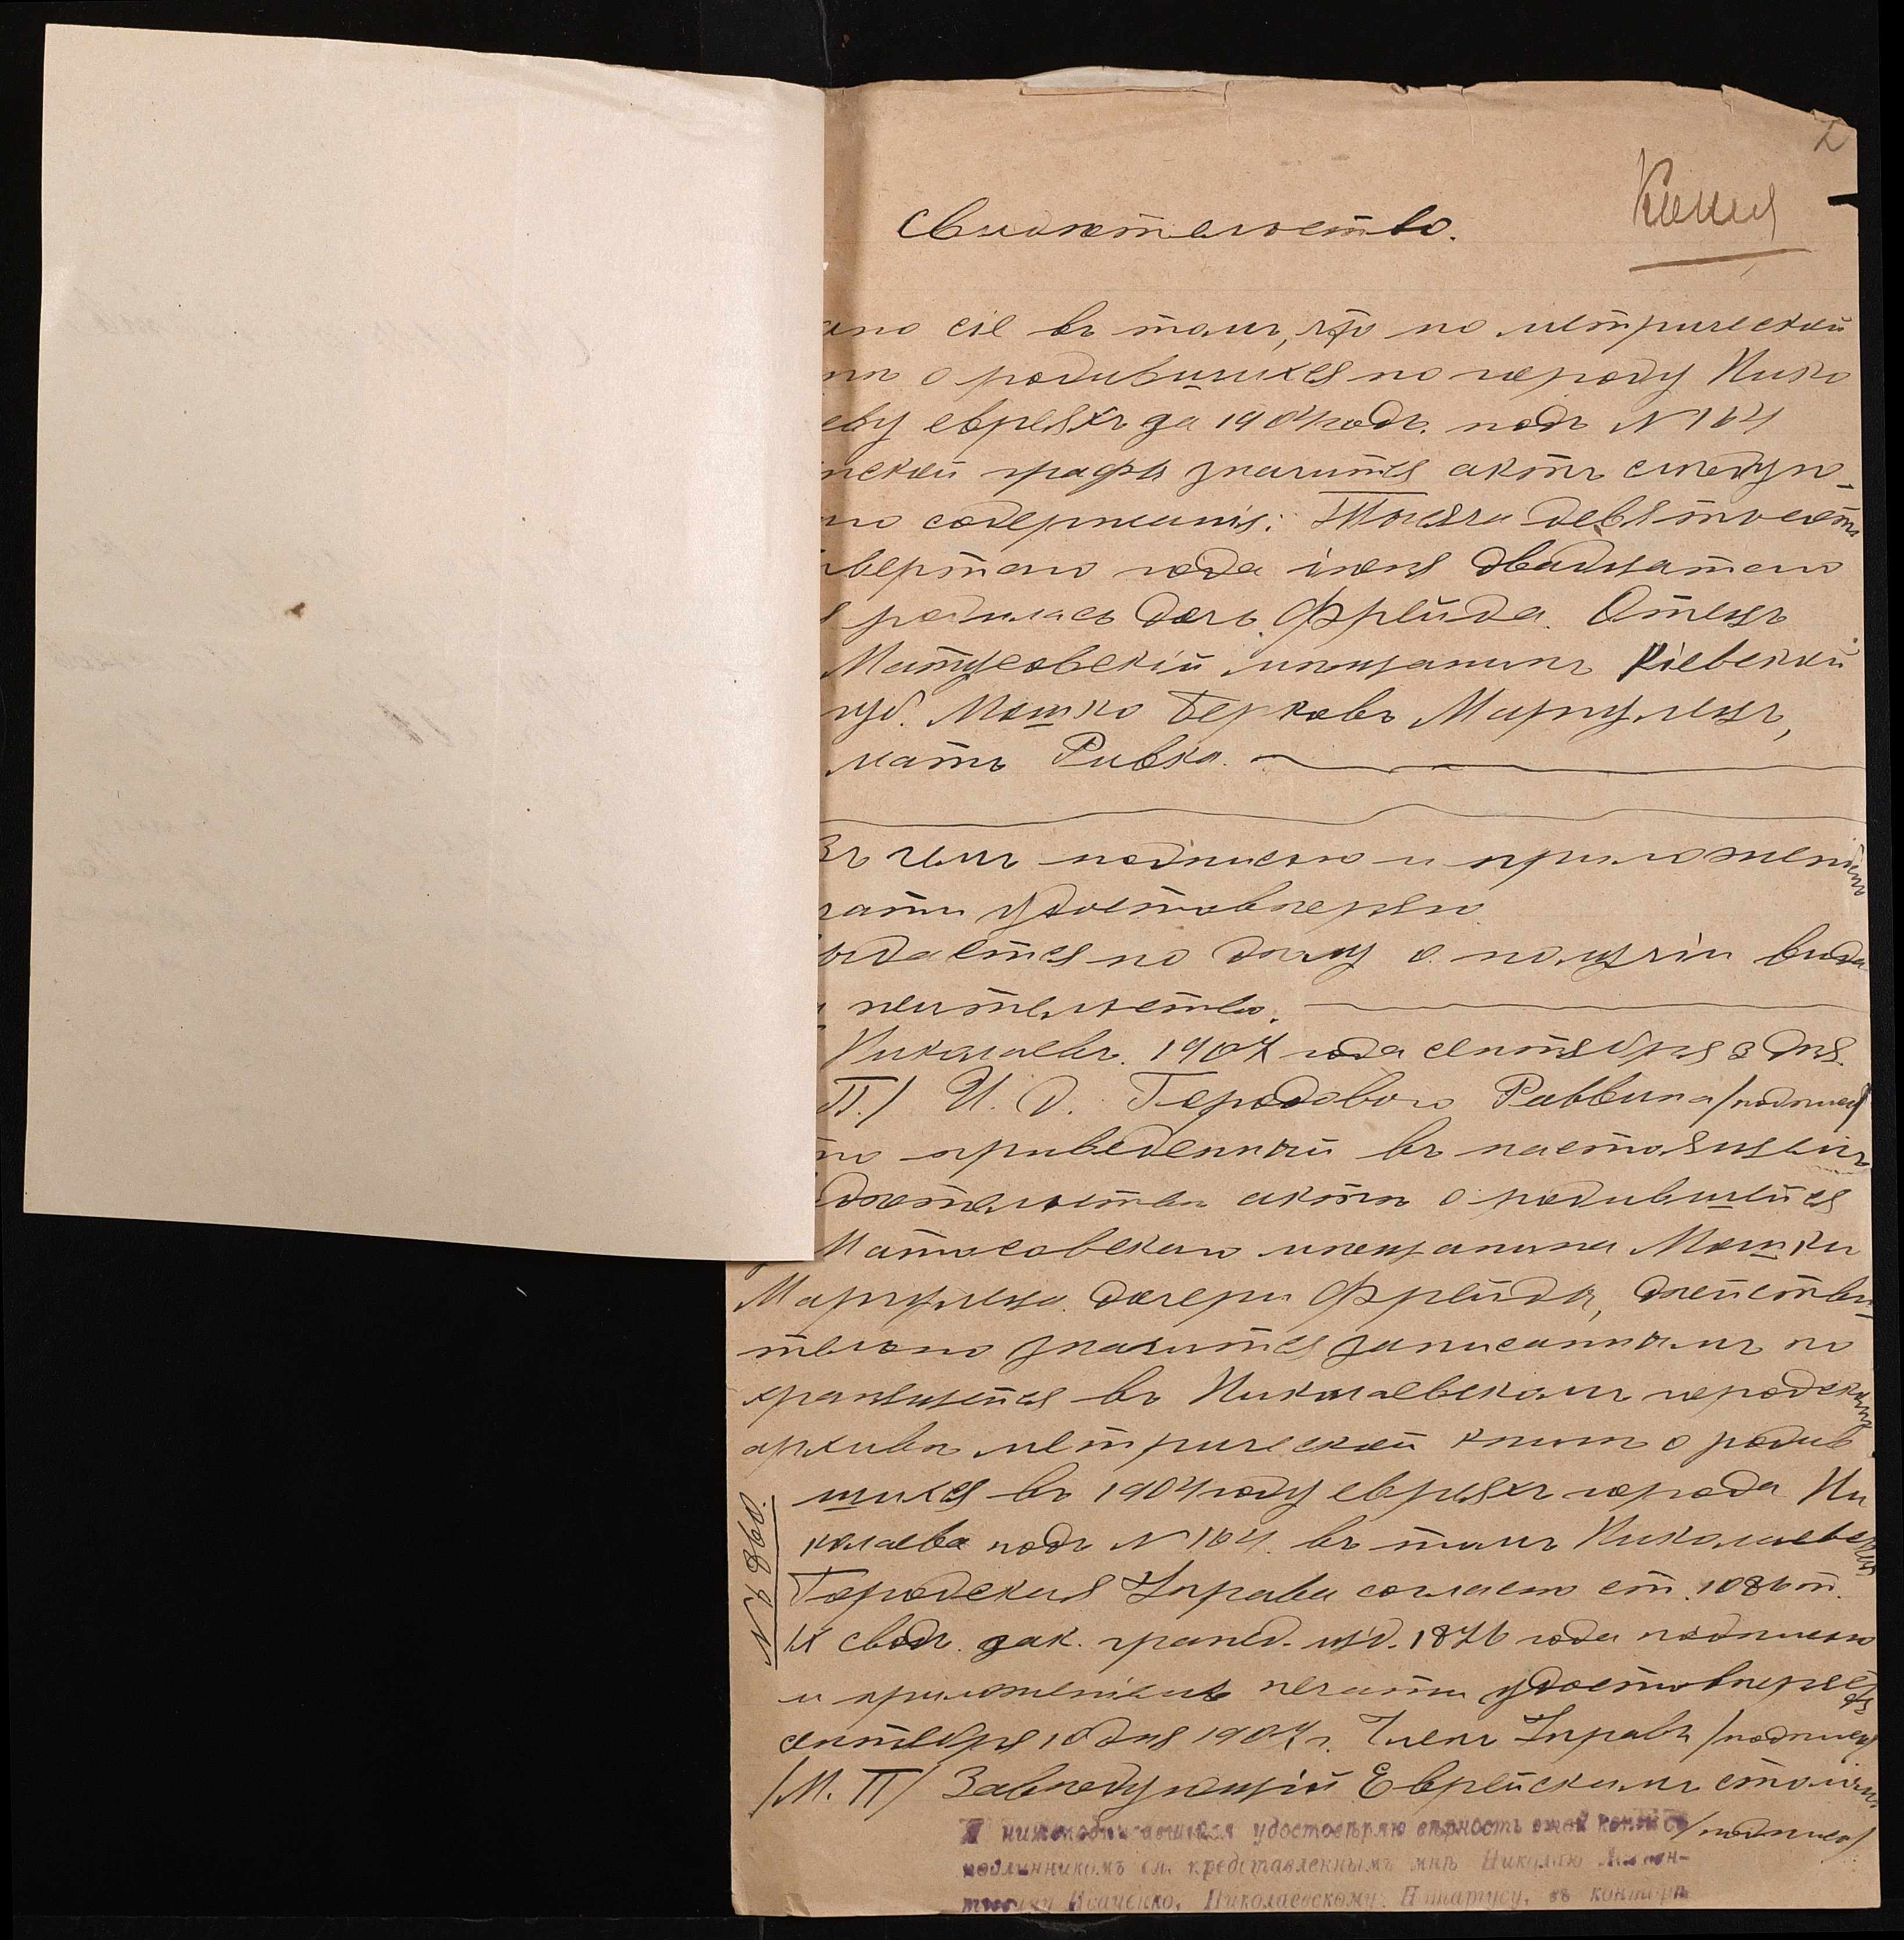 2
Копия
Свидѣтельство.
ано сіе въ томъ, что по метрической
о родившихся по городу Нико
еву евреяхъ за 1904 годъ. подъ N 164
нской графы значится актъ слѣдую-
го содержанія: Тысяча девятьсотъ
твертаго года іюня двадцатаго
родилась дочь Фрейда. Отецъ
Матусовскій мѣщанинъ Кіевской
губ. Мошко Берковъ Маргулецъ,
мать Ривка.
Въ чемъ подписью и приложеніемъ
чати удостовѣряю
ыдается по дѣлу о полученіи вида
жительство.
Николаевъ. 1907 года сентября 3 дня.
П./ И. Д. Городового Раввина /подпись/
то приведенный въ настоящемъ
дѣтельствѣ актъ о родившейся
Матусовскаго мѣщанина Мошки
Маргулеца дочери Фрейды, дѣйстви-
тельно значится записаннымъ по
хранящейся въ Николаевскомъ городскомъ
архивѣ метрической книгѣ о родив
шихся въ 1904 году евреяхъ города Ни
колаева подъ N 164. въ томъ Николаевская
Городская Управа согласно ст. 1086 т.
IX сводъ. зак. гражд. изд. 1876 года подписью
и приложеніемъ печати удостовѣряетъ
сентября 10 дня 1907 г. Членъ Управы /подпись/
/М. П/ Завѣдующій Еврейскимъ столомъ
/подпись/
N 8860.
Я нижеподписавшійся удостовѣряю вѣрность этой копіи съ
подлинникомъ ея, представленнымъ мнѣ Николаю
Исаченко, Николаевскому Нотаріусу, въ конторѣ